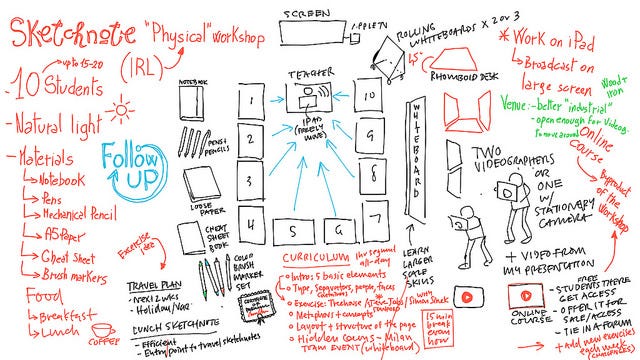 SKetchnote "Physical" workshop
(IRL)
up to 15-20
- 10 Students
- Natural light
- Materials
Notebook
Pens
Mechanical Pencil
A5 Paper
Cheat Sheet
Brush markers
Food
Breakfast
Lunch
COFFEE
Follow
UP
Exercise
idea
TRAVEL PLAN
- next 2 wks
- Holiday/
LUNCH SKETCHNOTE
- Efficient
- Entry point to travel sketchnotes
NOTEBOOK
PENS +
PENCILS
LOOSE
PAPER
CHEAT
SHEET
BOOK
COLOR
BRUSH
MARKER
SET
SCREEN
APPLE TV
TEACHER
IPAD
(FREELY
MOVE)
1
2
3
4
5
6
7
8
9
10
ROLLING
WHITEBOARDS x 2 or 3
RHOMBOID DESK
WHITEBOARD
LEARN
LARGER
SCALE
SKILLS
CURRICULUM 1hr segment
all-day
Intro: 5 basic elements
Type, Separators, people, faces
Exercise: Treehouse / Steve Jobs / Silicon Sheet
Metaphors + concepts
Layout + structure of the page
Hidden Gems - Milan
TEAM EVENT (whiteboard)
15 min
break
every
hour
* Work on iPad
Broadcast on
large screen
Wood +
iron
Venue: - better "industrial"
- open enough for Videog.
to move around
Online
course
Byproduct
of the
workshop
TWO
VIDEOGRAPHERS
OR
ONE
W/
STATIONARY
CAMERA
+ VIDEO FROM
MY PRESENTATION
ONLINE
COURSE
FREE
- STUDENTS THERE
GET ACCESS
- OFFER IT FOR
SALE/ACCESS
- TIE IN A FORUM
+ add new exercises
each week
(CHALLENGES)